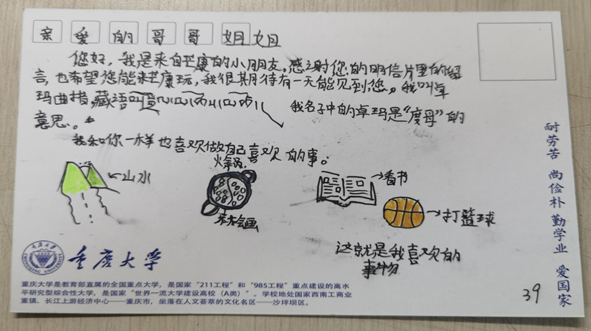 亲爱的哥哥姐姐
您好，我是来自芒康的小朋友，感谢您的明信片里的留
言，也希望您能来芒康玩，我很期待有一天能见到您。我叫
玛曲措，藏语叫
我名字中的卓玛是“度母”的
意思。
我和你一样也喜欢做自己喜欢的事。
火锅
山水
看书
打篮球
这就是我喜欢的
事物
耐劳苦 尚俭朴 勤学业 爱国家
重庆大学
重庆大学是教育部直属的全国重点大学，是国家“211工程”和“985工程”重点建设的高水
平研究型综合性大学，是国家“世界一流大学建设高校（A类）”。学校地处国家西南工商业
重镇、长江上游经济中心——重庆市，坐落在人文荟萃的文化名区——沙坪坝区。
39